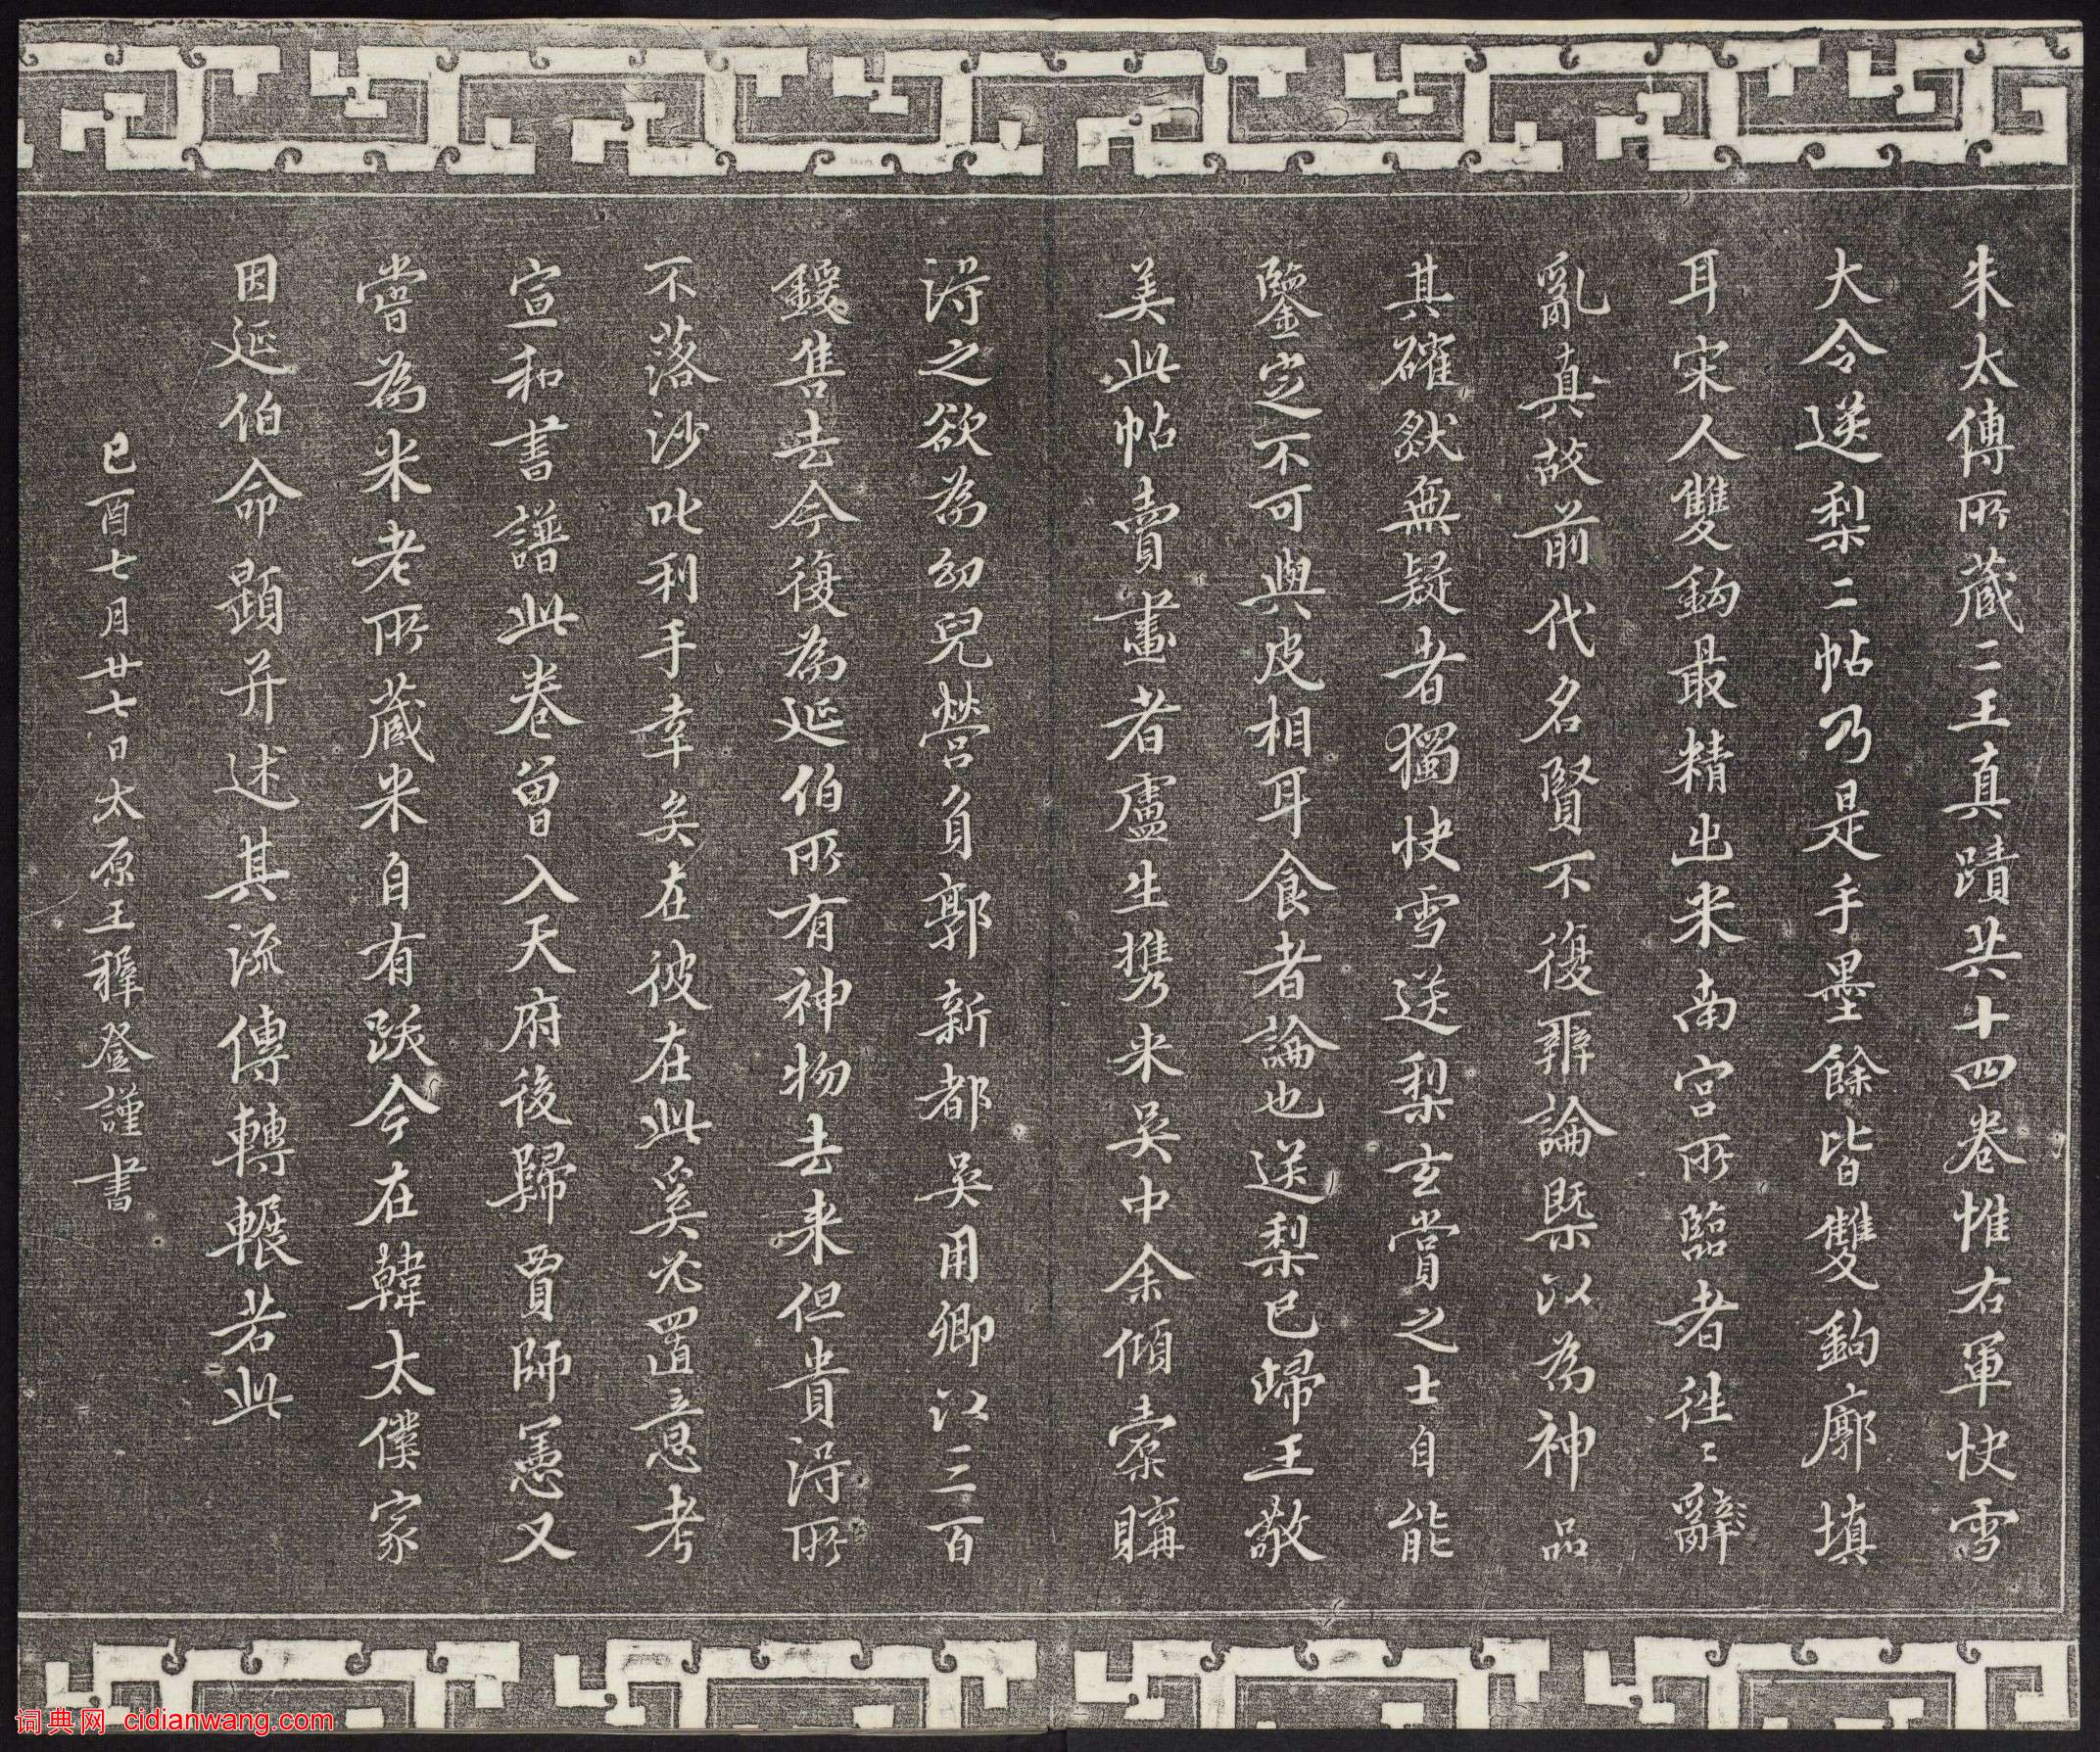 朱太傅所藏二王真蹟共十四卷惟右軍快雪
大令送梨二帖乃是手墨餘皆雙鉤廓填
耳宋人雙鉤最精出米南宮所臨者往々辭
亂真故前代名賢不復辨論槩以為神品
其確然無疑者獨快雪送梨玄賞之士自能
鑒定不可與皮相耳食者論也送梨已歸王敬
美此帖賣畫者盧生攜來吳中余傾橐購
得之欲為幼兒營負郭新都吳用卿以三百
鍰售去今復為延伯所有神物去來但貴得所
不落沙叱利手幸矣在彼在此奚必置意考
宣和書譜此卷曾入天府後歸賈師憲又
嘗為米老所藏米自有跋今在韓太僕家
因延伯命題并述其流傳轉輾若此
已酉七月廿七日太原王穉登謹書
词典网 cidianwang.com